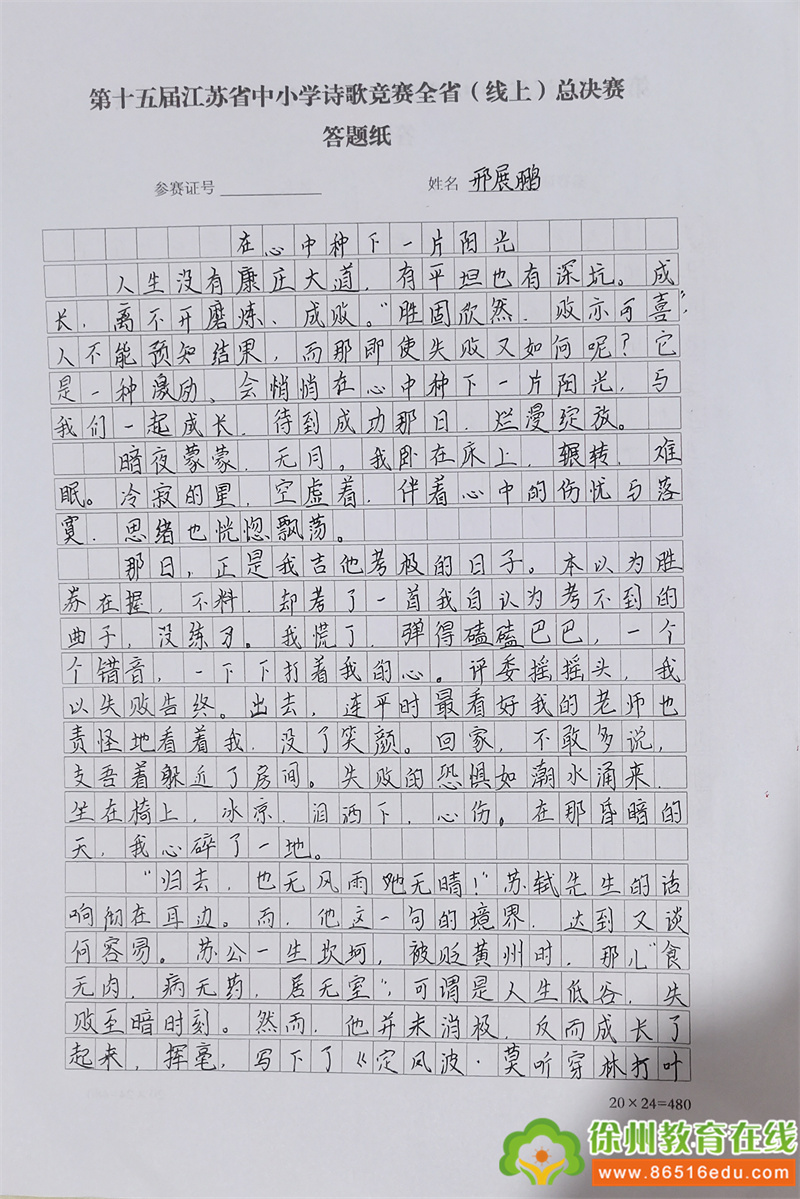 第十五届江苏省中小学诗歌竞赛全省（线上）总决赛
答题纸
参赛证号 姓名 邢展鹏
在心中种下一片阳光
人生没有康庄大道，有平坦也有深坑。成
长，离不开磨炼、成败。“胜固欣然，败亦可喜”，
人不能预知结果，而那即使失败又如何呢？它
是一种激励，会悄悄在心中种下一片阳光，与
我们一起成长，待到成功那日，烂漫绽放。
暗夜蒙蒙，无月。我卧在床上，辗转，难
眠。冷寂的星，空虚着，伴着心中的伤忧与落
寞，思绪也恍惚飘荡。
那日，正是我吉他考极的日子。本以为胜
券在握，不料，却考了一首我自认为考不到的
曲子，没练习。我慌了，弹得磕磕巴巴，一个
个错音，一下下打着我的心。评委摇摇头，我
以失败告终。出去，连平时最看好我的老师也
责怪地看着我，没了笑颜。回家，不敢多说，
支吾着躲近了房间。失败的恐惧如潮水涌来，
坐在椅上，冰凉，泪洒下，心伤。在那昏暗的
天，我心碎了一地。
“归去，也无风雨也无晴！”苏轼先生的话
响彻在耳边。而，他这一句的境界，达到又谈
何容易。苏公一生坎坷，被贬黄州时，那儿“食
无肉，病无药，居无室”，可谓是人生低谷，失
败至暗时刻。然而，他并未消极，反而成长了
起来，挥毫，写下了《定风波·莫听穿林打叶
20×24=480
徐州教育在线
www.86516edu.com